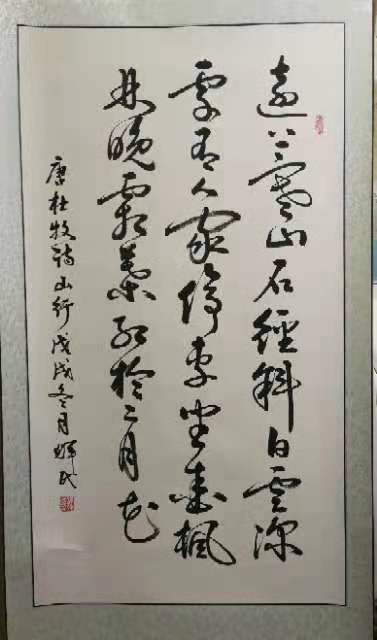 遠上寒山石經斜白雲深
處有人家停車坐愛楓
林晚霜葉紅於二月花
唐杜牧詩山行戊戌冬月輝民